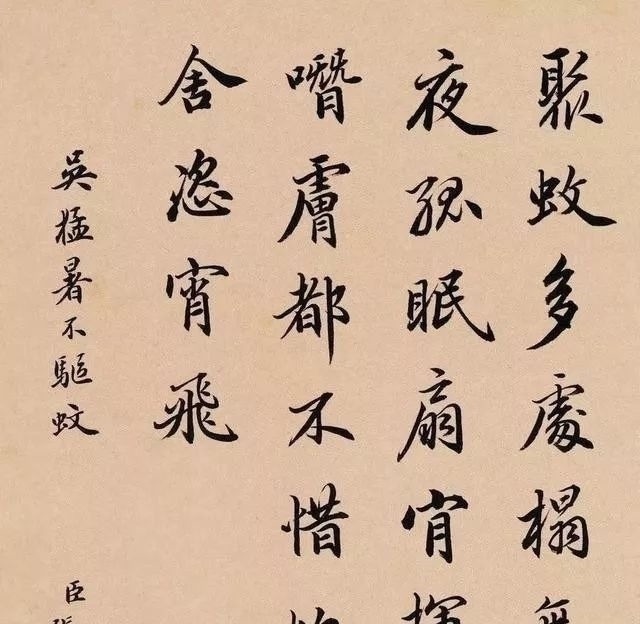 聚蚊多處榻無
夜孤眠扇肯揮
噆膚都不惜
舍恣宵飛
吳猛暑不驅蚊
臣張